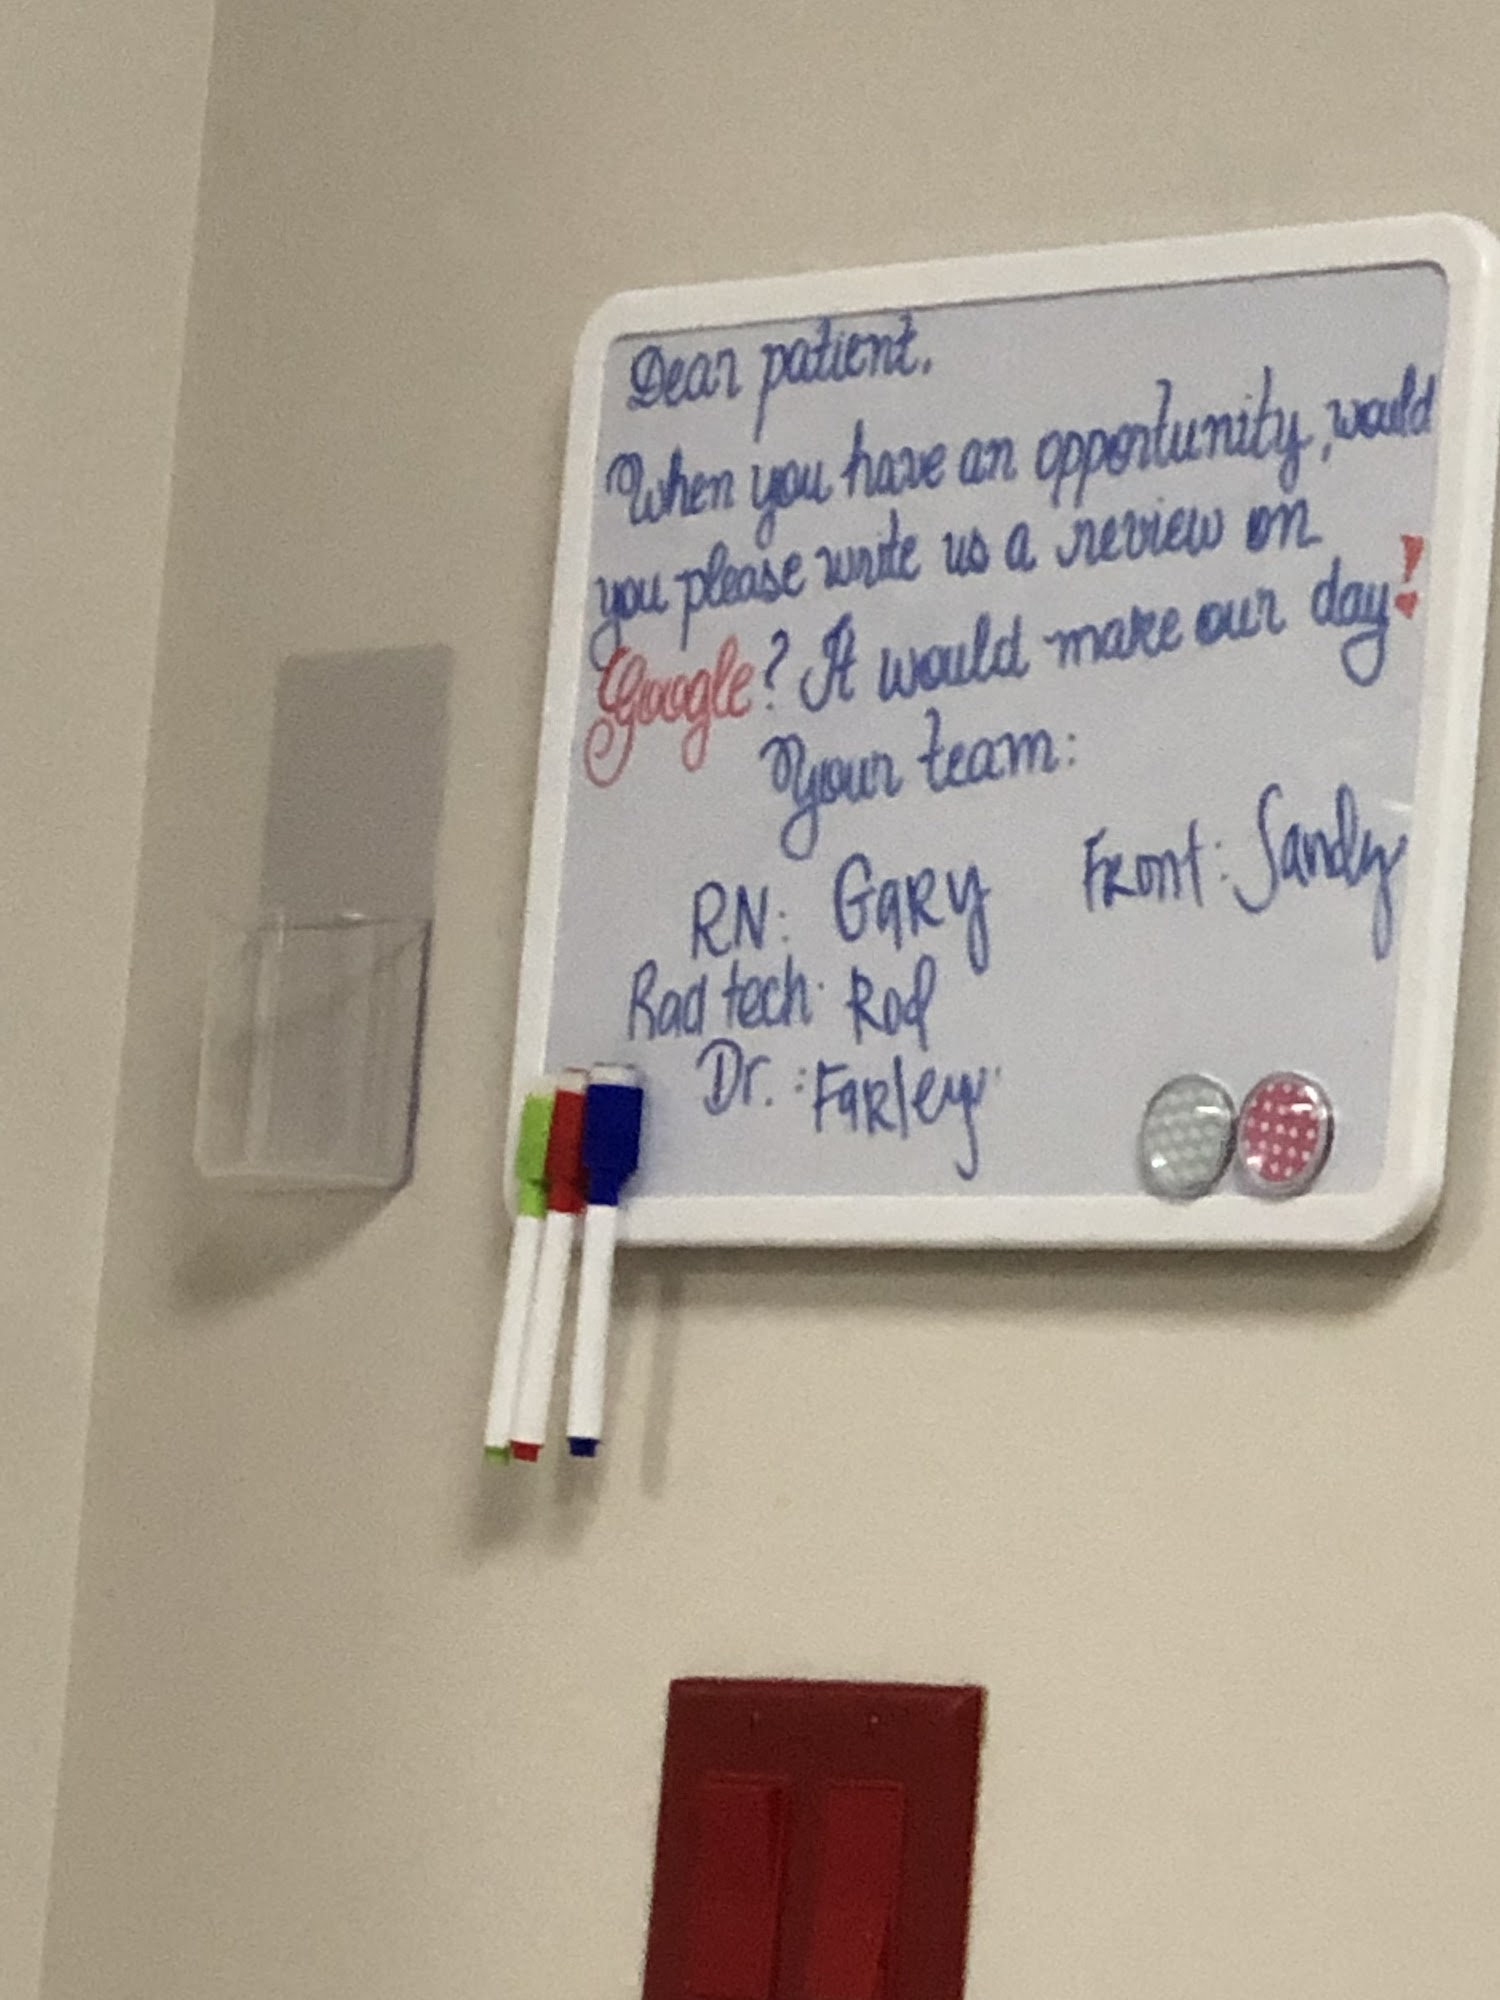 Dear patient,
When you have an opportunity, would
you please write us a review on
Google? It would make our day!
Your team:
RN: Gary Front: Sandy
Rad tech: Rod
Dr.: Farley